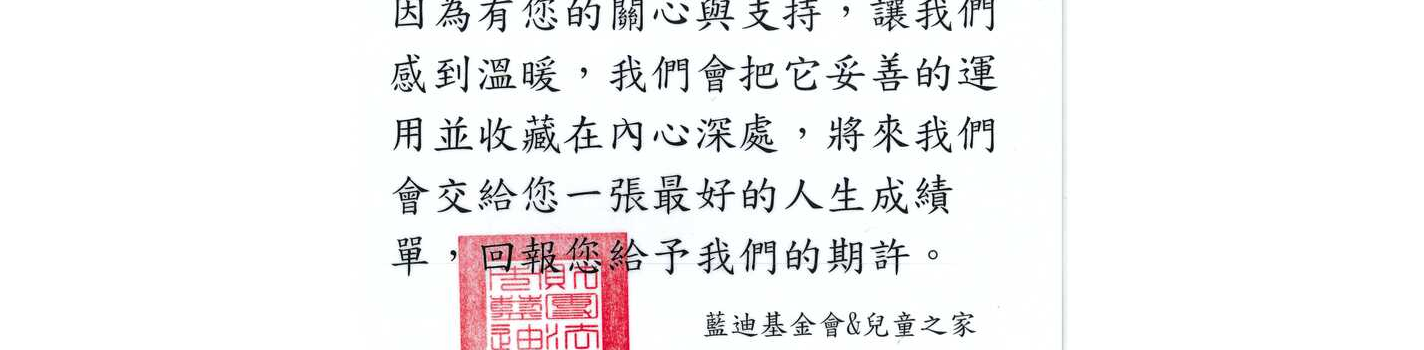 因為有您的關心與支持，讓我們
感到溫暖，我們會把它妥善的運
用並收藏在內心深處，將來我們
會交給您一張最好的人生成績
單，回報您給予我們的期許。
藍迪基金會&兒童之家